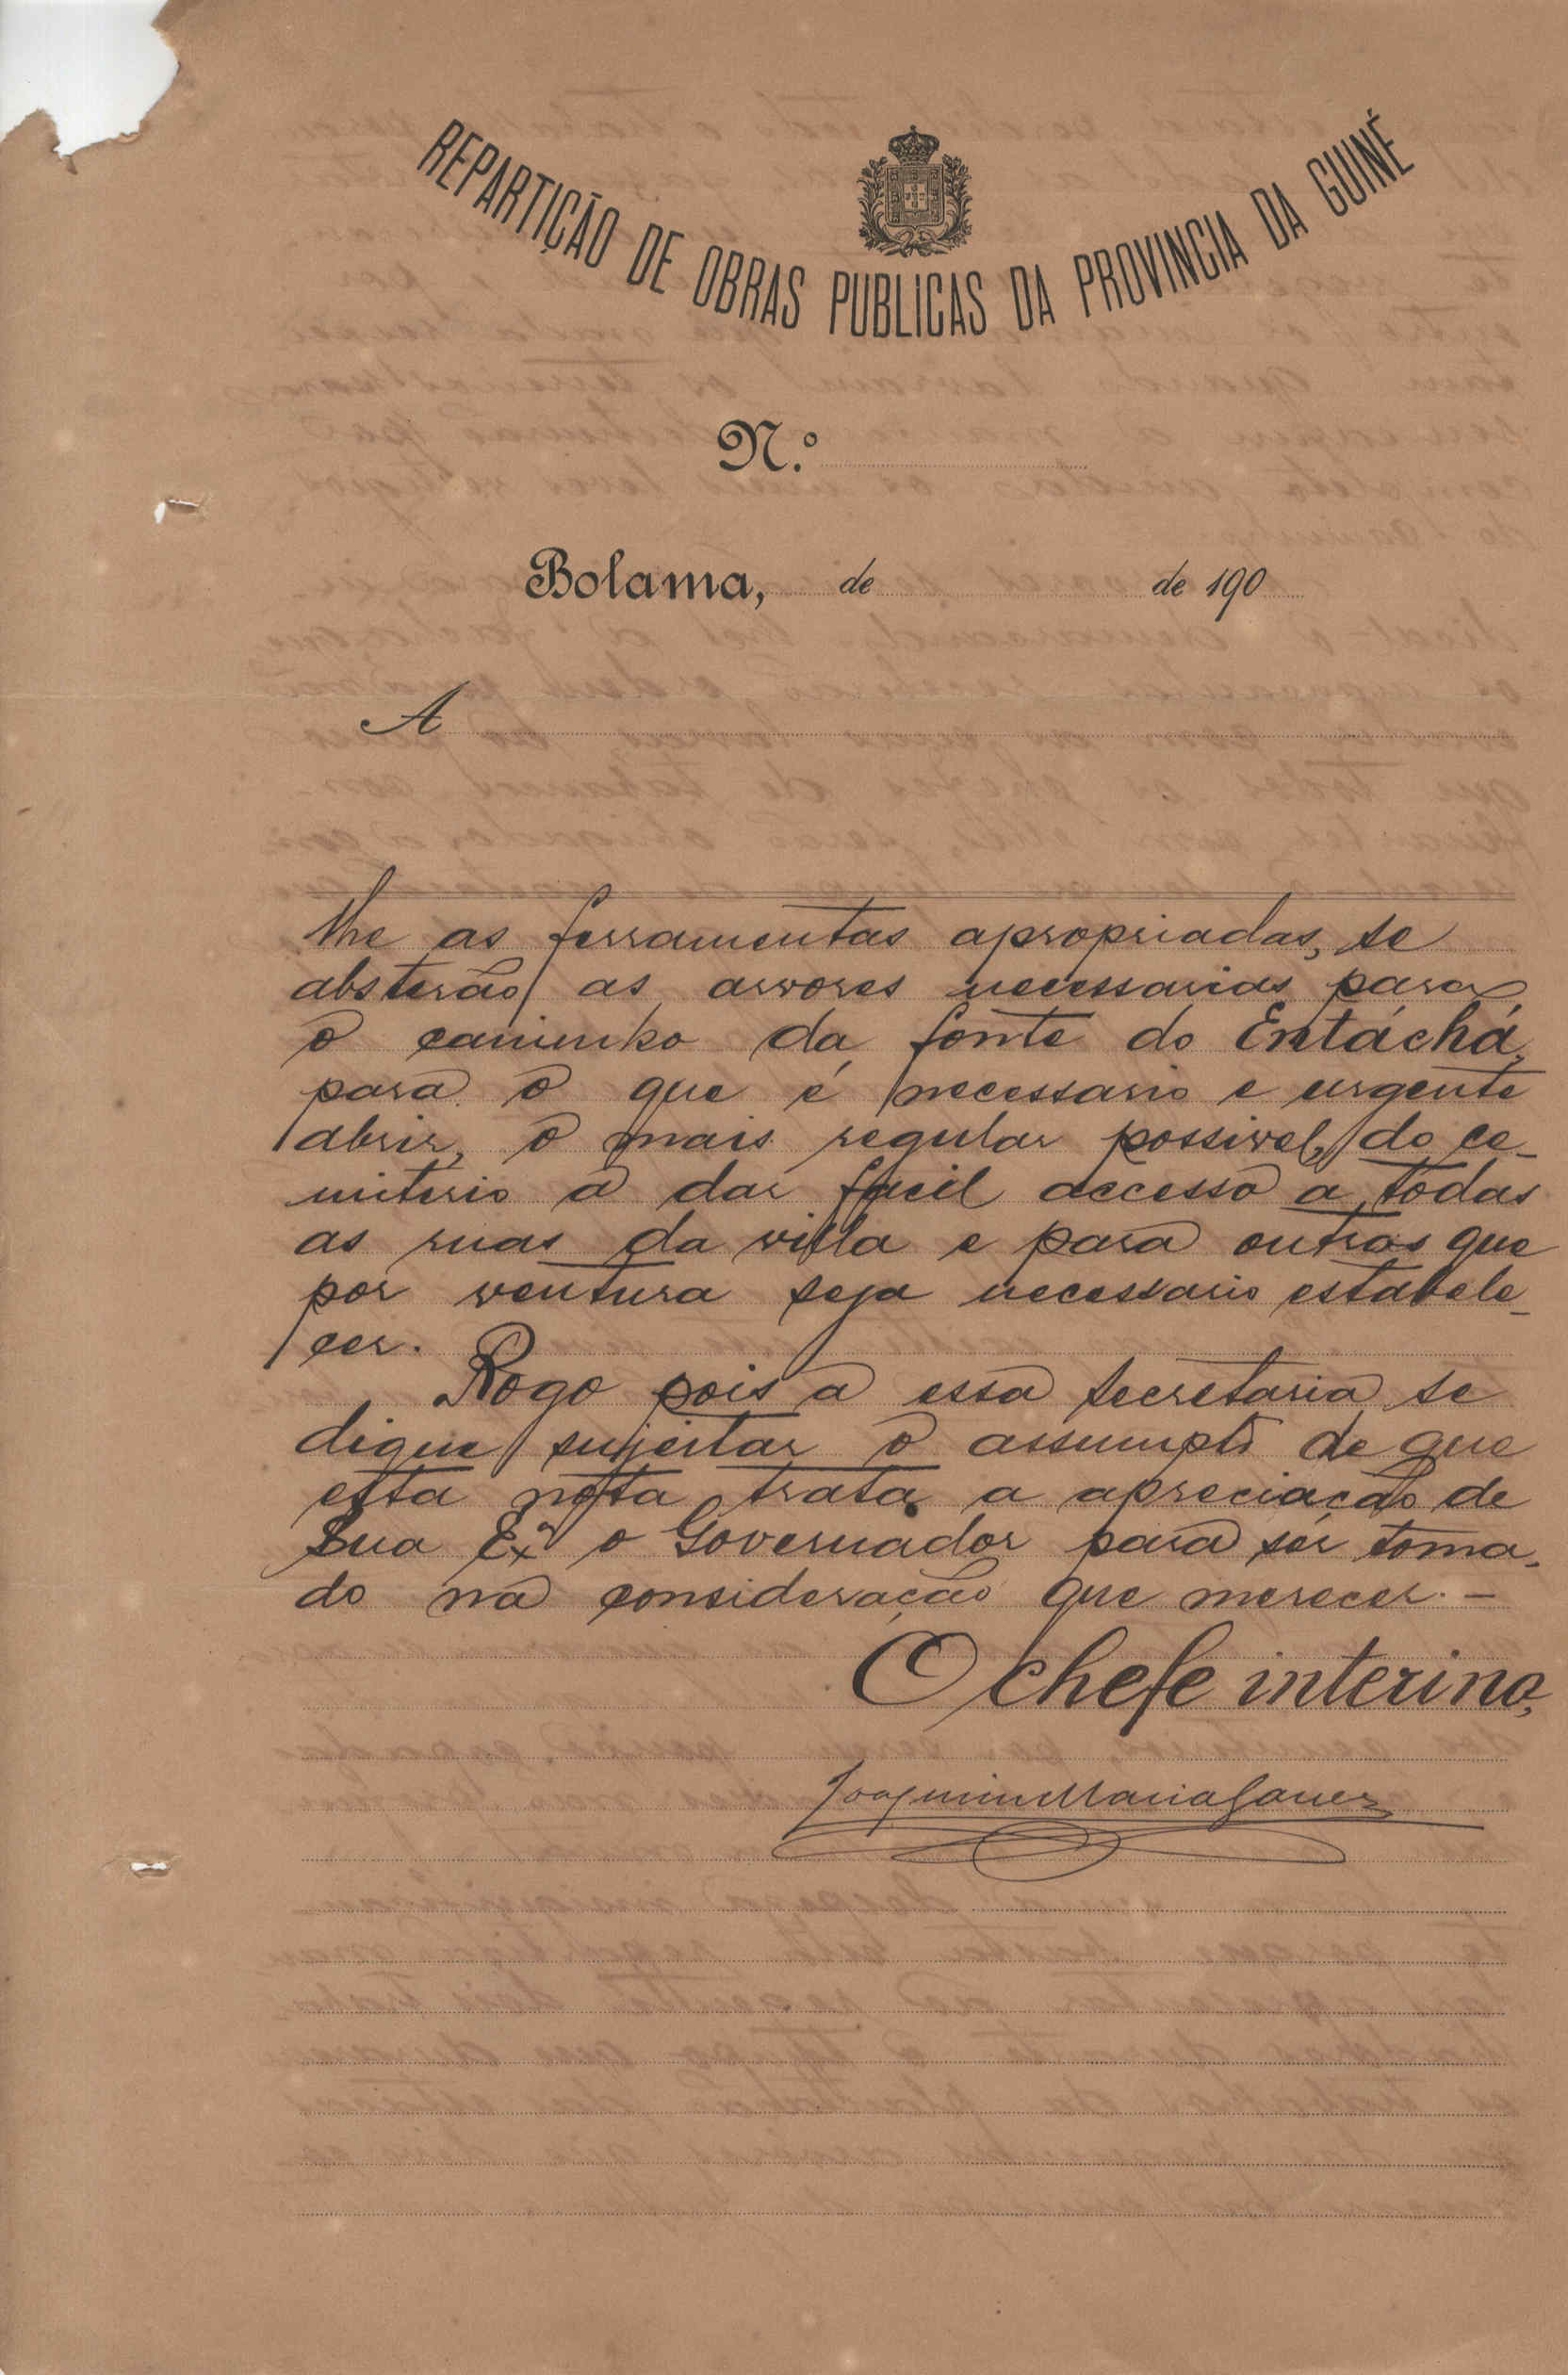 REPARTIÇÃO DE OBRAS PUBLICAS DA PROVINCIA DA GUINÉ
N.º
Bolama, de de 190
A
lhe as ferramentas apropriadas, se
absterão as arvores necessarias para
o caminho da fonte do Entáchá,
para o que é necessario e urgente
abrir, o mais regular possivel, do ce-
miterio a dar facil accesso a todas
as ruas da villa e para outras que
por ventura seja necessario estabele-
cer.
Rogo pois a essa secretaria se
digne sujeitar o assumpto de que
esta nota trata a apreciação de
Sua Exª o Governador para ser toma-
do na consideração que merecer. -
O chefe interino,
Joaquim Maria